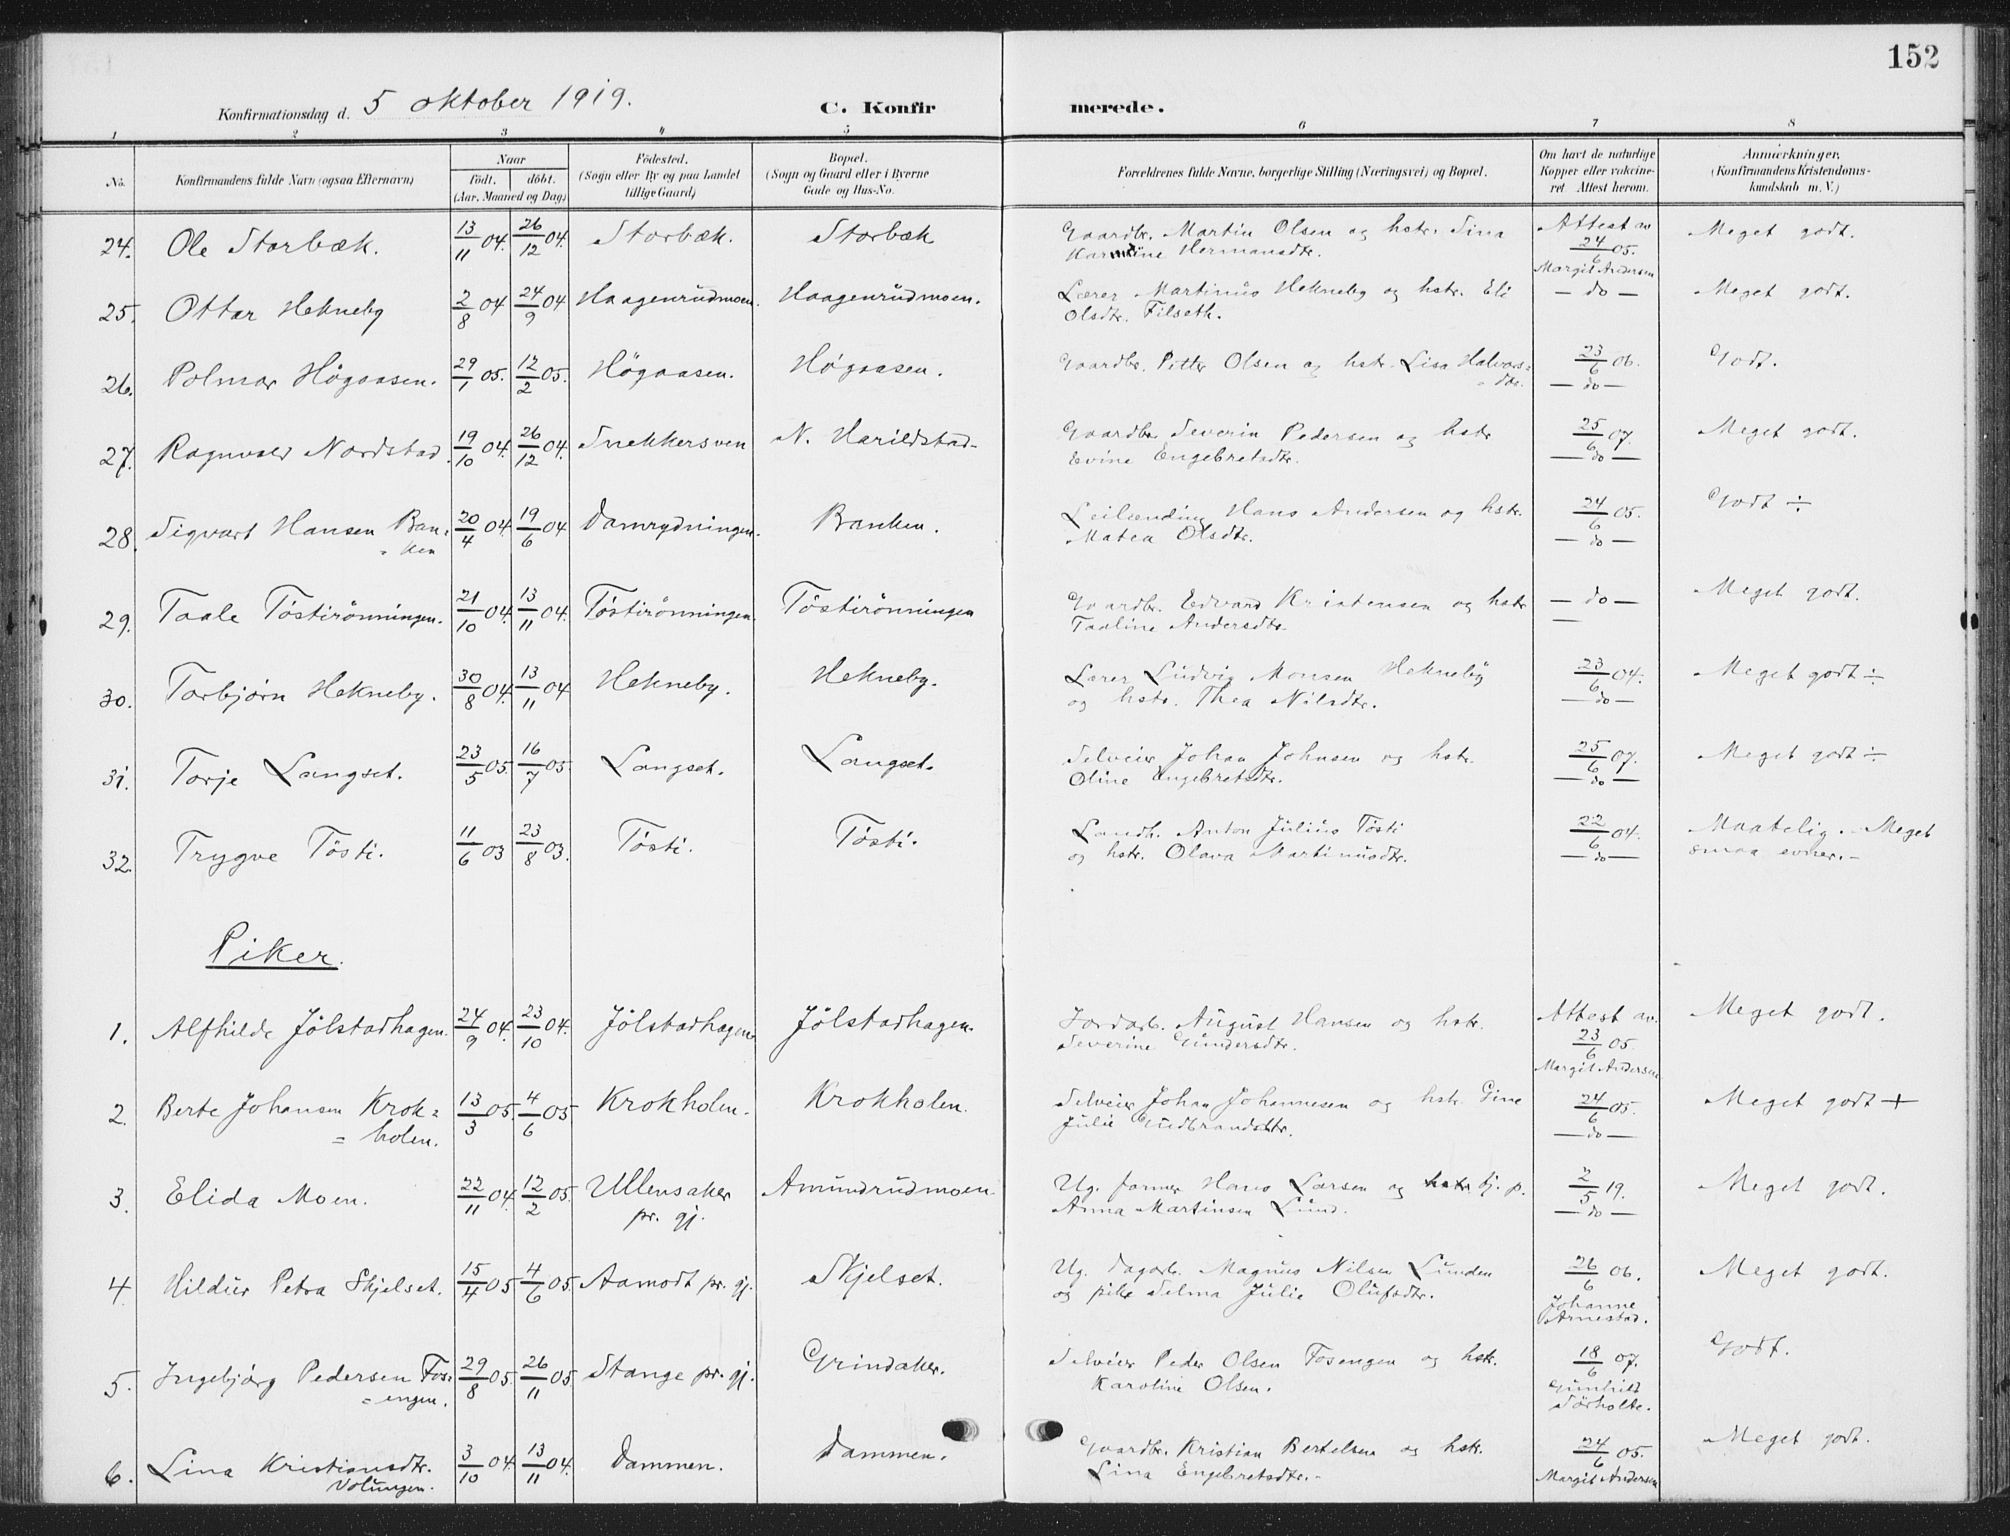 152
Konfirmationsdag d. 5 oktober 1919.
C. Konfirmerede.
1 2 3 4 5 6 7 8
No.
Konfirmandens fulde Navn (ogsaa Efternavn)
Naar
födt. döbt.
(Aar, Maaned og Dag)
Födested.
(Sogn eller By og paa Landet
tillige Gaard)
Bopæl.
(Sogn og Gaard eller i Byerne
Gade og Hus-No.
Forældrenes fulde Navne, borgerlige Stilling (Næringsvei) og Bopæl.
Om havt de naturlige
Kopper eller vakcine-
ret. Attest herom.
Anmærkninger.
(Konfirmandens Kristendoms-
kundskab m. V.)
24. Ole Storbæk. 13/11 04. 26/12 04. Storbæk. Storbæk Gaardbr. Martin Olsen og hstr. Sina Attest av Meget godt.
Karoline Hermansdtr. 24/6 05.
Margit Andersen
25. Ottar Hekneby 2/8 04 24/9 04 Haagenrudmoen. Haagenrudmoen. Lærer Martinus Hekneby og hstr. Eli — do — Meget godt.
Olsdtr. Filseth.
26. Polmar Högaasen. 29/1 05. 12/2 05. Högaasen. Högaasen. Gaardbr. Petter Olsen og hstr. Lisa Halvors= 23/6 06. Godt.
= dtr. — do —
27. Ragnvald Nordstad. 19/10 04. 26/12 04. Snekkersven N. Harildstad- Gaardbr. Severin Pedersen og hstr 25/6 07. Meget godt.
Evine Engebretsdtr. — do —
28. Sigvart Hansen Ban= 20/4 04. 19/6 04 Damrydningen. Banken. Leilænding Hans Andersen og hstr. 24/6 05. Godt ÷
= ken Matea Olsdtr. — do —
29. Taale Töstirönningen. 21/10 04. 13/11 04. Töstirönningen. Töstirönningen Gaardbr. Edvard Kristensen og hstr — do — Meget godt.
Taaline Andersdtr.
30. Torbjörn Hekneby. 30/8 04. 13/11 04 Hekneby. Hekneby. Lærer Ludvig Monsen Hekneby 23/6 04. Meget godt ÷
og hstr. Thea Nilsdtr. — do —
31. Torje Langset. 23/5 05. 16/7 05. Langset. Langset. Selveier Johan Johnsen og hstr. 25/6 07. Meget godt ÷
Oline Engebretsdtr. — do —
32. Trygve Tösti. 11/6 03 23/8 03. Tösti. Tösti. Landh. Anton Julius Tösti 22/6 04. Maatelig. - Meget
og hstr. Olava Martinusdtr. — do — smaa evner. -
Piker.
1. Alfhilde Jölstadhagen. 24/9 04. 23/10 04. Jölstadhagen. Jölstadhagen. Jordarb. August Hansen og hstr. Attest av. Meget godt.
Severine Gundersdtr. 23/6 05.
Margit Andersen
2. Berte Johansen Krok= 13/3 05. 4/6 05 Krokholen. Krokholen. Selveier Johan Johannesen og hstr. Gine 24/6 05. Meget godt +
= holen. Julie Gudbrandsdtr. — do —
3. Elida Moen. 22/11 04. 12/2 05. Ullensaker Amundrudmoen. Ug. farmer Hans Larsen og hstr tj. p. 2/5 19. Meget godt.
pr. gj. Anna Martinsen Lund. — do —
4. Hildur Petra Skjelset. 15/4 05 4/6 05. Aamodt pr. gj. Skjelset. Ug. dagarb. Magnus Nilsen Lunden 26/6 06. Meget godt.
og pike Selma Julie Olufsdtr. Johanne
Arnestad.
5. Ingebjörg Pedersen Fos= 29/8 05. 26/11 05 Stange pr. gj. Grindaker. Selveier Peder Olsen Fosengen og hstr. 18/6 07. Godt.
= engen. Karoline Olsen. Gunhild
Sörholte.
6. Lina Kristiansdtr. 3/10 04. 13/11 04. Dammen. Dammen. Gaardbr. Kristian Bertelsen og hstr. 24/6 05. Meget godt.
Volungen. Lina Engebretsdtr. - Margit Andersen